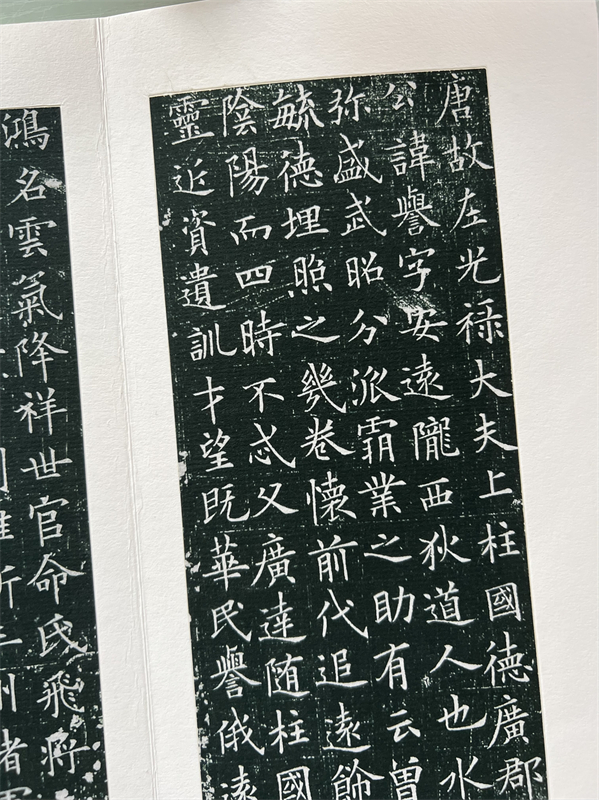 唐故左光禄大夫上柱國德廣郡
公諱譽字安遠隴西狄道人也水
弥盛武昭分派霸業之助有云曽
毓德埋照之幾卷懷前代追遠飾
陰陽而四時不忒父廣達随柱國
靈近資遺訓才望既華民譽俄遠
鴻名雲氣降祥世官命氏飛将